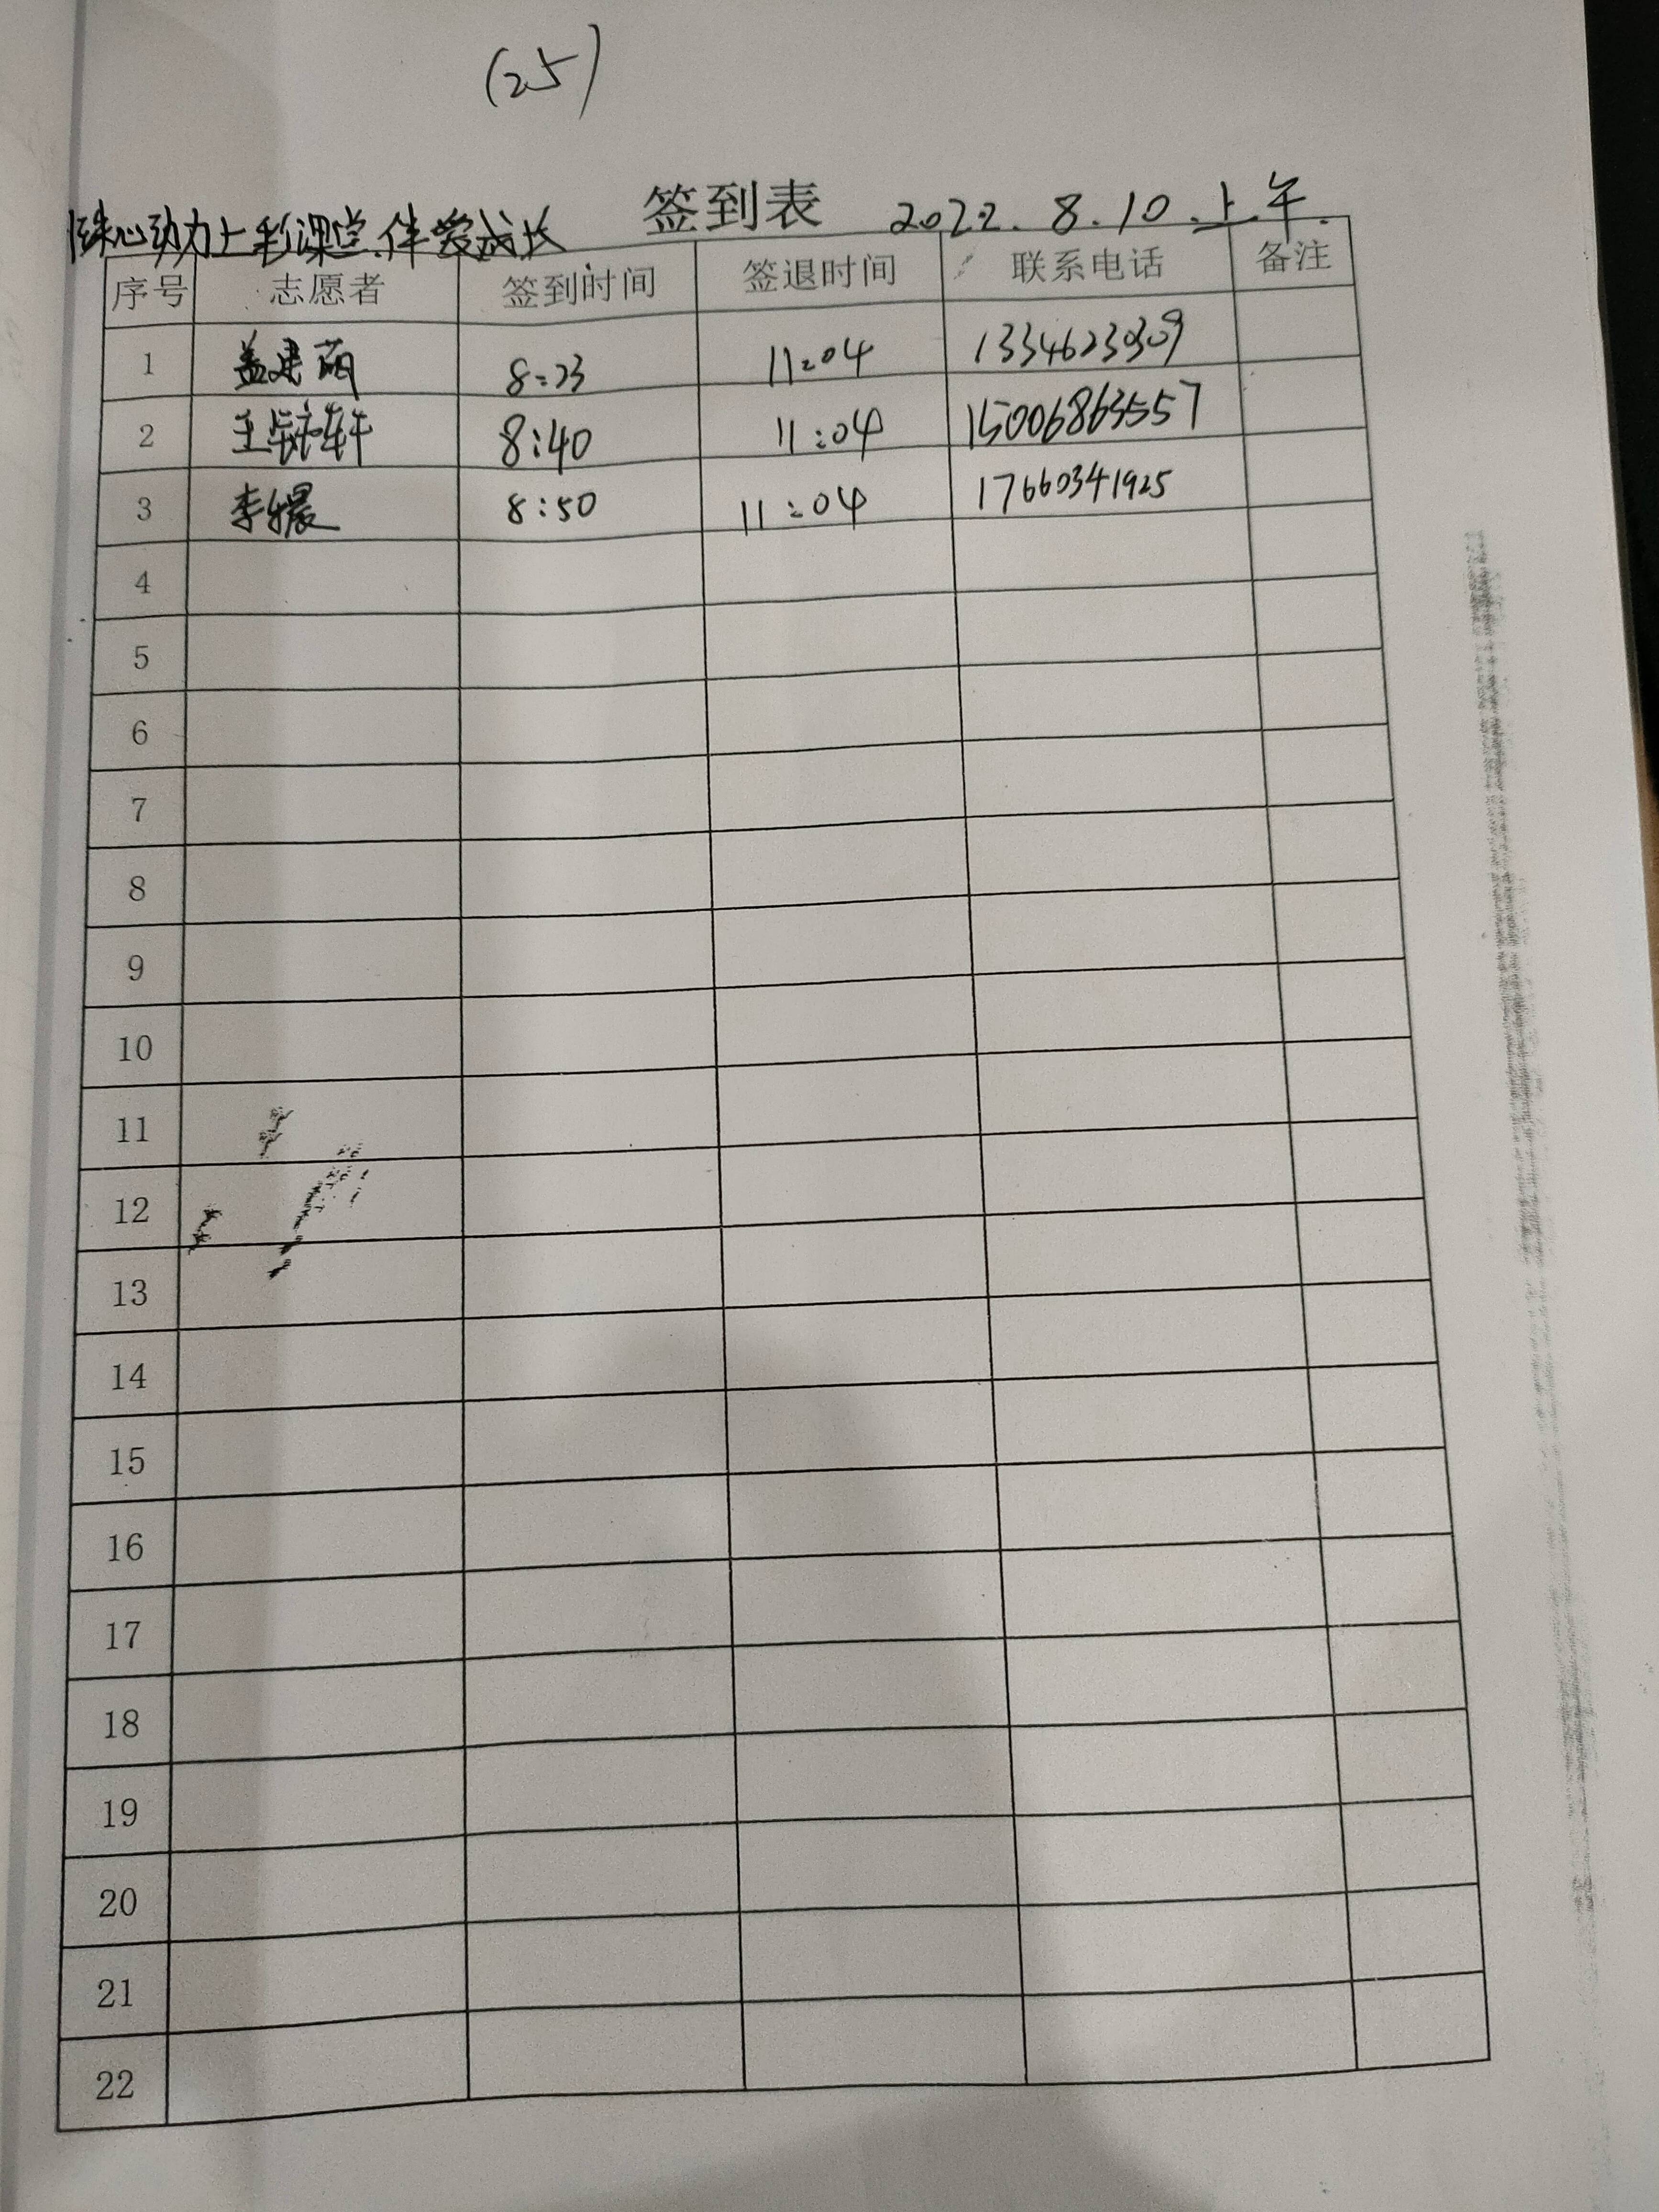 (25)
签到表 2022.8.10.上午.
心动力七彩课堂.伴爱成长
序号 志愿者 签到时间 签退时间 联系电话 备注
1 盖建丽 8:23 11:04 13346230309
2 王毓轩 8:40 11:04 15006863557
3 李晨 8:50 11:04 17660341925
4
5
6
7
8
9
10
11
12
13
14
15
16
17
18
19
20
21
22